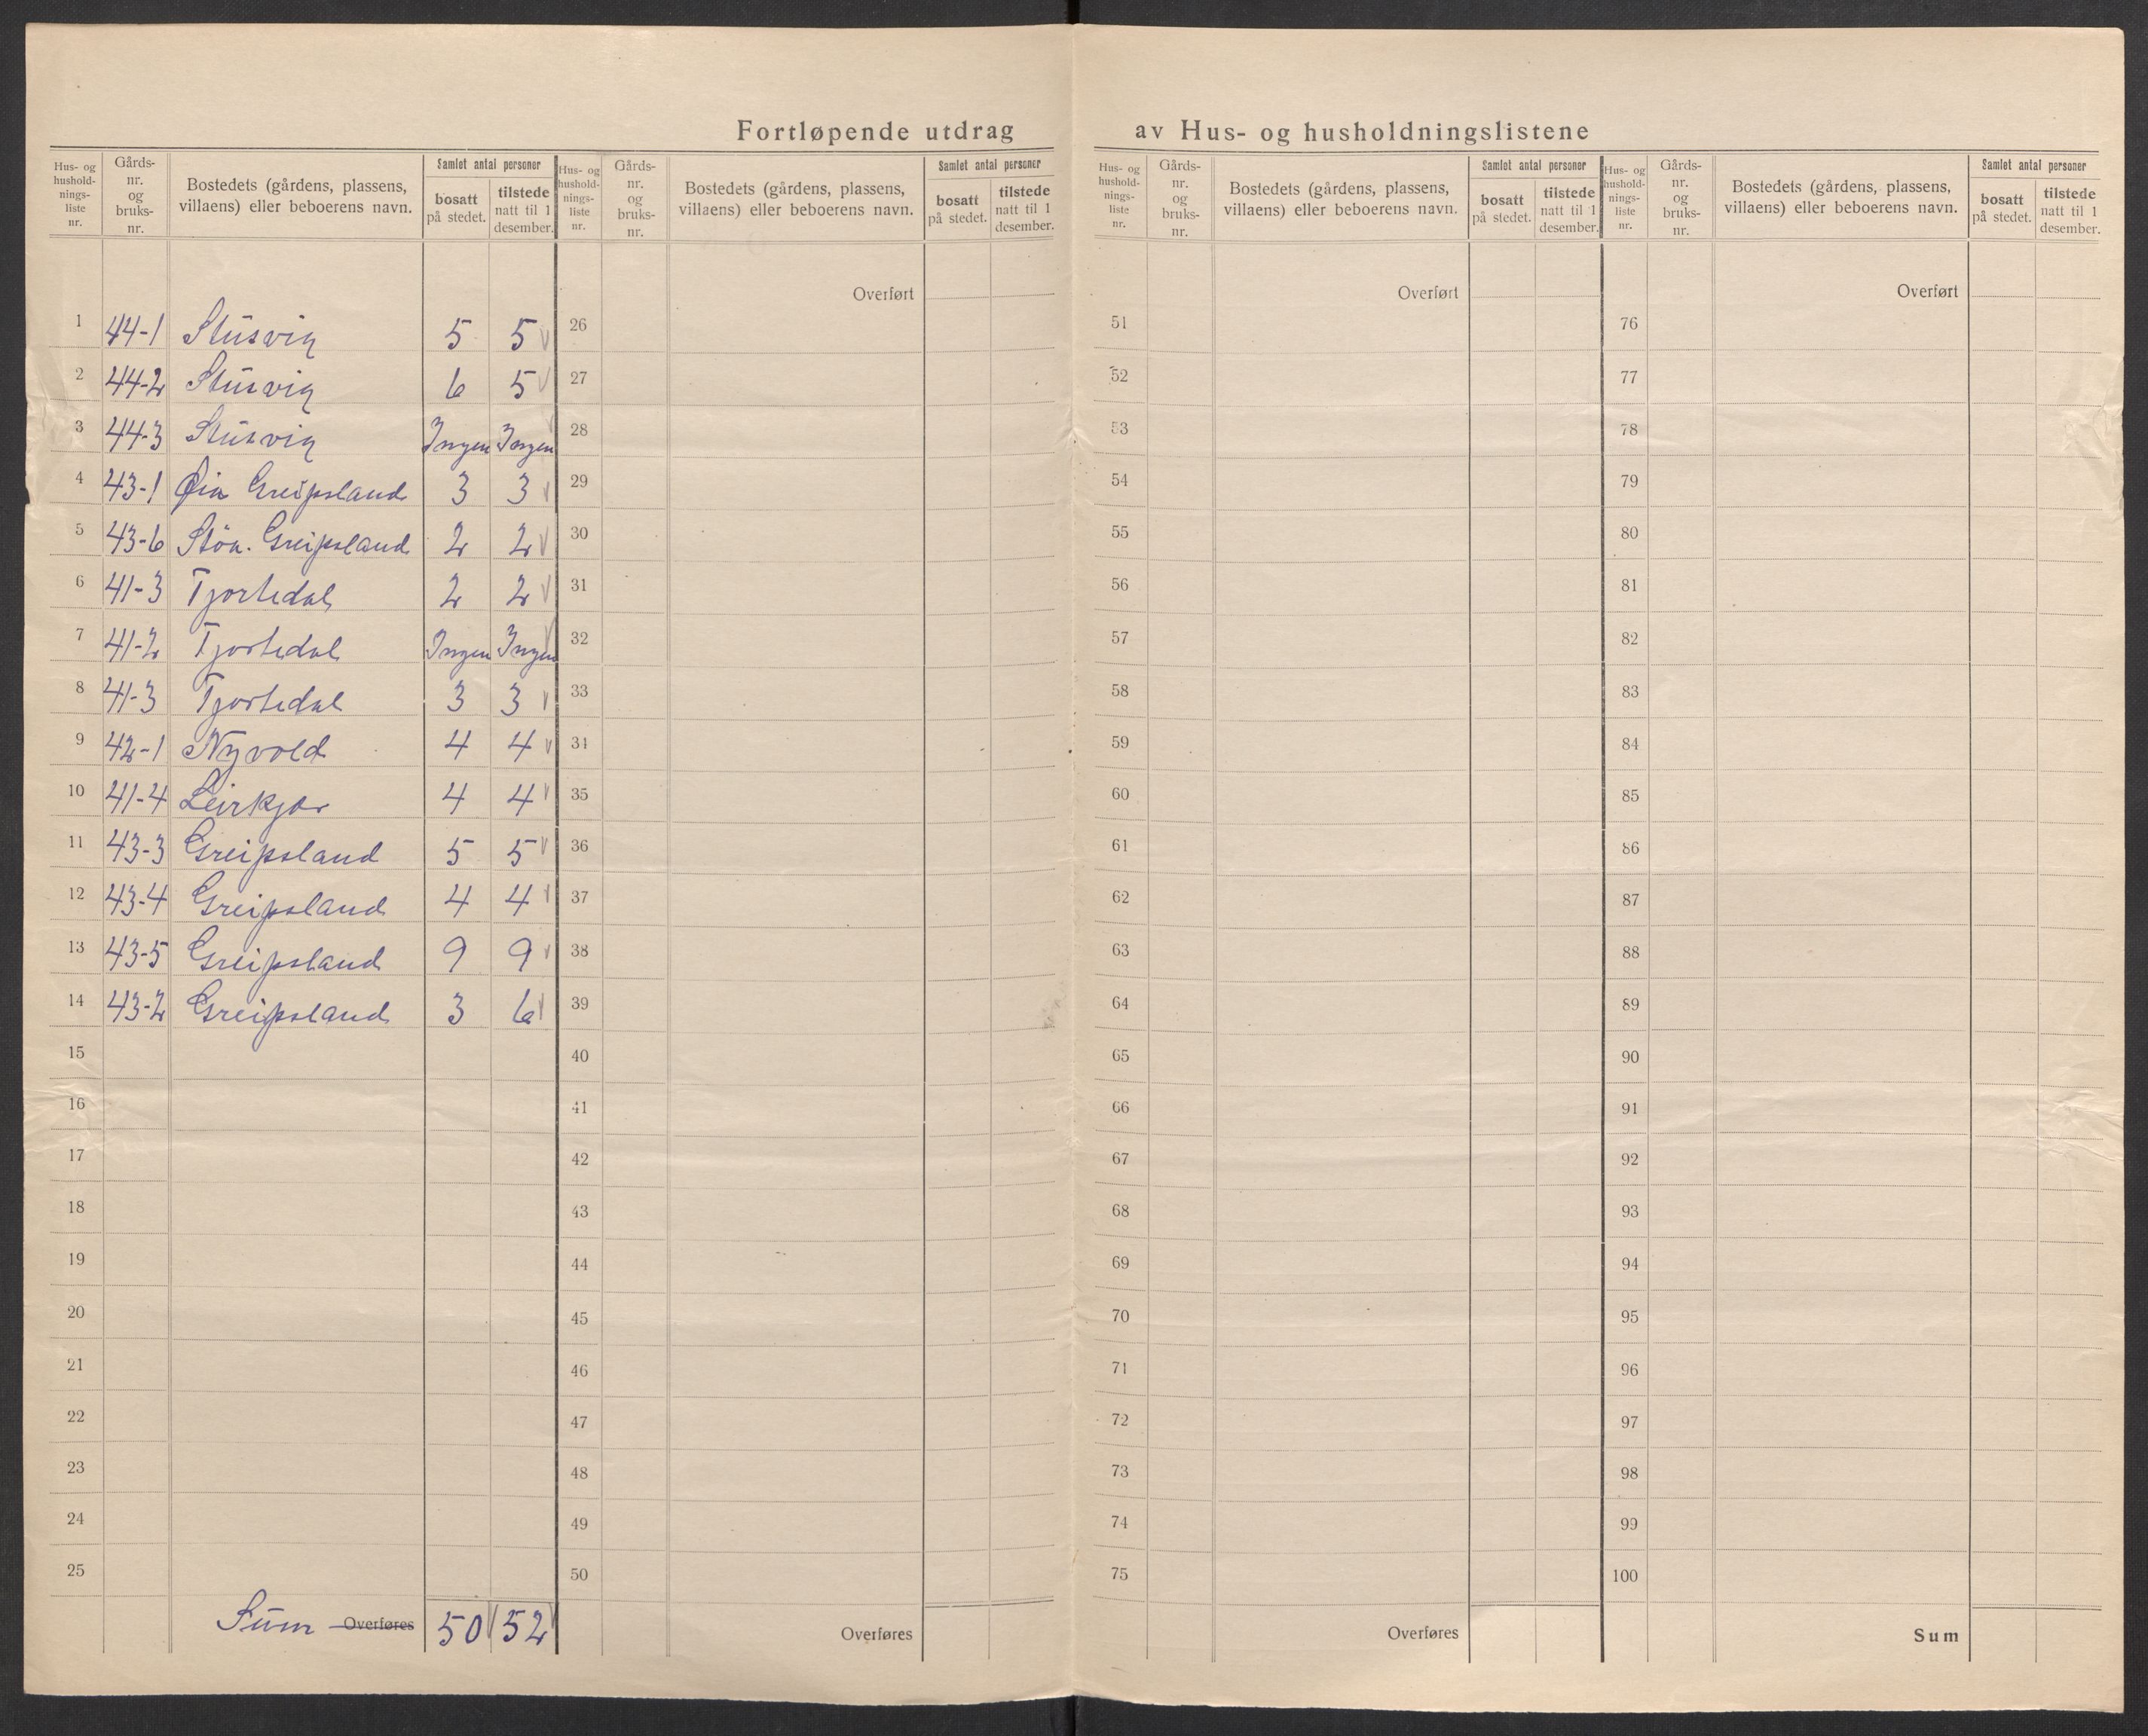 Fortløpende utdrag av Hus- og husholdningslistene
Hus- og husholdnings-liste nr. | Gårds-nr. og bruks-nr. | Bostedets (gårdens, plassens, villaens) eller beboerens navn. | Samlet antal personer | bosatt på stedet. | tilstede natt til 1 desember.
Hus- og husholdnings-liste nr. | Gårds-nr. og bruks-nr. | Bostedets (gårdens, plassens, villaens) eller beboerens navn. | Samlet antal personer | bosatt på stedet. | tilstede natt til 1 desember.
Hus- og husholdnings-liste nr. | Gårds-nr. og bruks-nr. | Bostedets (gårdens, plassens, villaens) eller beboerens navn. | Samlet antal personer | bosatt på stedet. | tilstede natt til 1 desember.
Hus- og husholdnings-liste nr. | Gårds-nr. og bruks-nr. | Bostedets (gårdens, plassens, villaens) eller beboerens navn. | Samlet antal personer | bosatt på stedet. | tilstede natt til 1 desember.
1 44-1 Stusvig 5 5
2 44-2 Stusvig 6 5
3 44-3 Stusvig Ingen Ingen
4 43-1 Greipsland 3 3
5 43-6 Greipsland 2 2
6 41-3 Tjortedal 2 2
7 41-2 Tjortedal Ingen Ingen
8 41-3 Tjortedal 3 3
9 42-1 Nyvold 4 4
10 41-4 Leirkjær 4 4
11 43-3 Greipsland 5 5
12 43-4 Greipsland 4 4
13 43-5 Greipsland 9 9
14 43-2 Greipsland 3 6
15
16
17
18
19
20
21
22
23
24
25
Sum Overføres 50 52
Overført
26
27
28
29
30
31
32
33
34
35
36
37
38
39
40
41
42
43
44
45
46
47
48
49
50
Overføres
Overført
51
52
53
54
55
56
57
58
59
60
61
62
63
64
65
66
67
68
69
70
71
72
73
74
75
Overføres
Overført
76
77
78
79
80
81
82
83
84
85
86
87
88
89
90
91
92
93
94
95
96
97
98
99
100
Sum